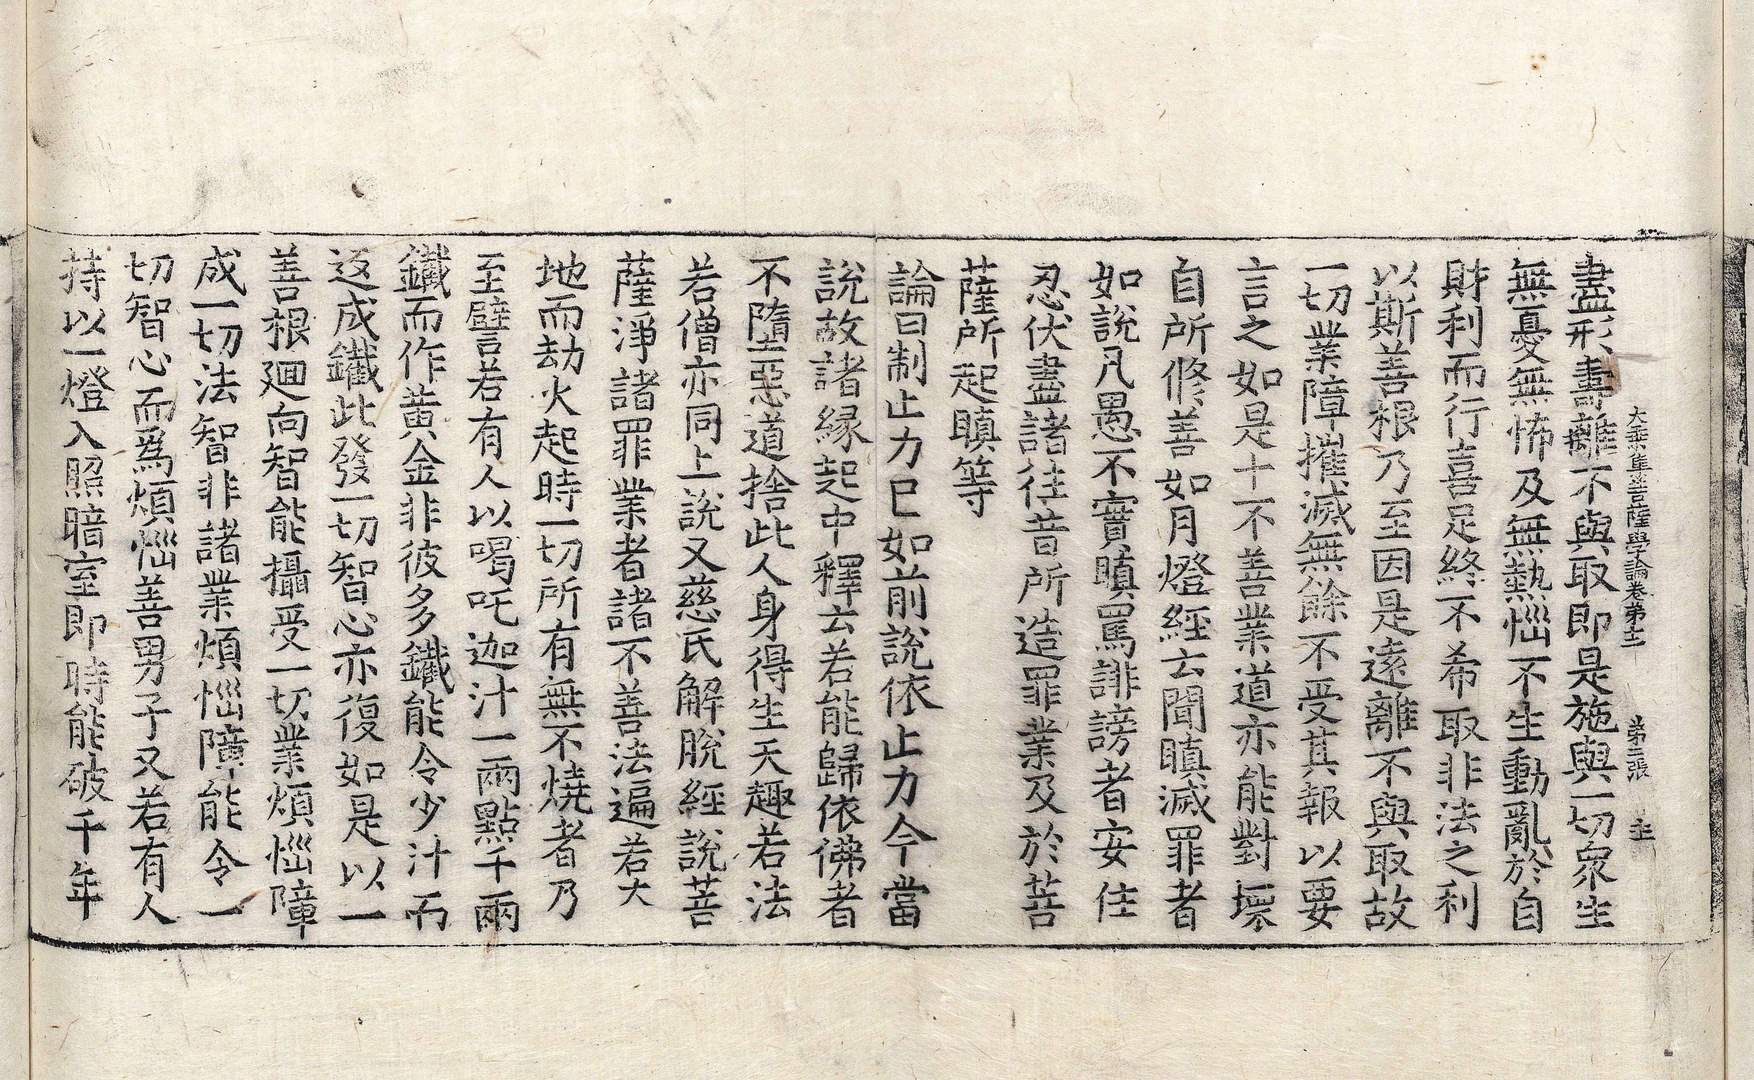 大乘集菩薩學論卷第十一 第三張 主
盡形壽離不與取即是施與一切衆生
無憂無怖及無熱惱不生動亂於自
財利而行喜足終不希取非法之利
以斯善根乃至因是遠離不與取故
一切業障摧滅無餘不受其報以要
言之如是十不善業道亦能對壞
自所修善如月燈經云聞瞋滅罪者
如說凡愚不實瞋罵誹謗者安住
忍伏盡諸往昔所造罪業及於菩
薩所起瞋等
論曰制止力已如前說依止力今當
說故諸緣起中釋云若能歸依佛者
不墮惡道捨此人身得生天趣若法
若僧亦同上說又慈氏解脫經說菩
薩淨諸罪業者諸不善法遍若大
地而劫火起時一切所有無不燒者乃
至譬若有人以喝吒迦汁一兩點千兩
鐵而作黃金非彼多鐵能令少汁而
返成鐵此發一切智心亦復如是以一
善根廻向智能攝受一切業煩惱障
成一切法智非諸業煩惱障能令一
切智心而爲煩惱善男子又若有人
持以一燈入照暗室即時能破千年